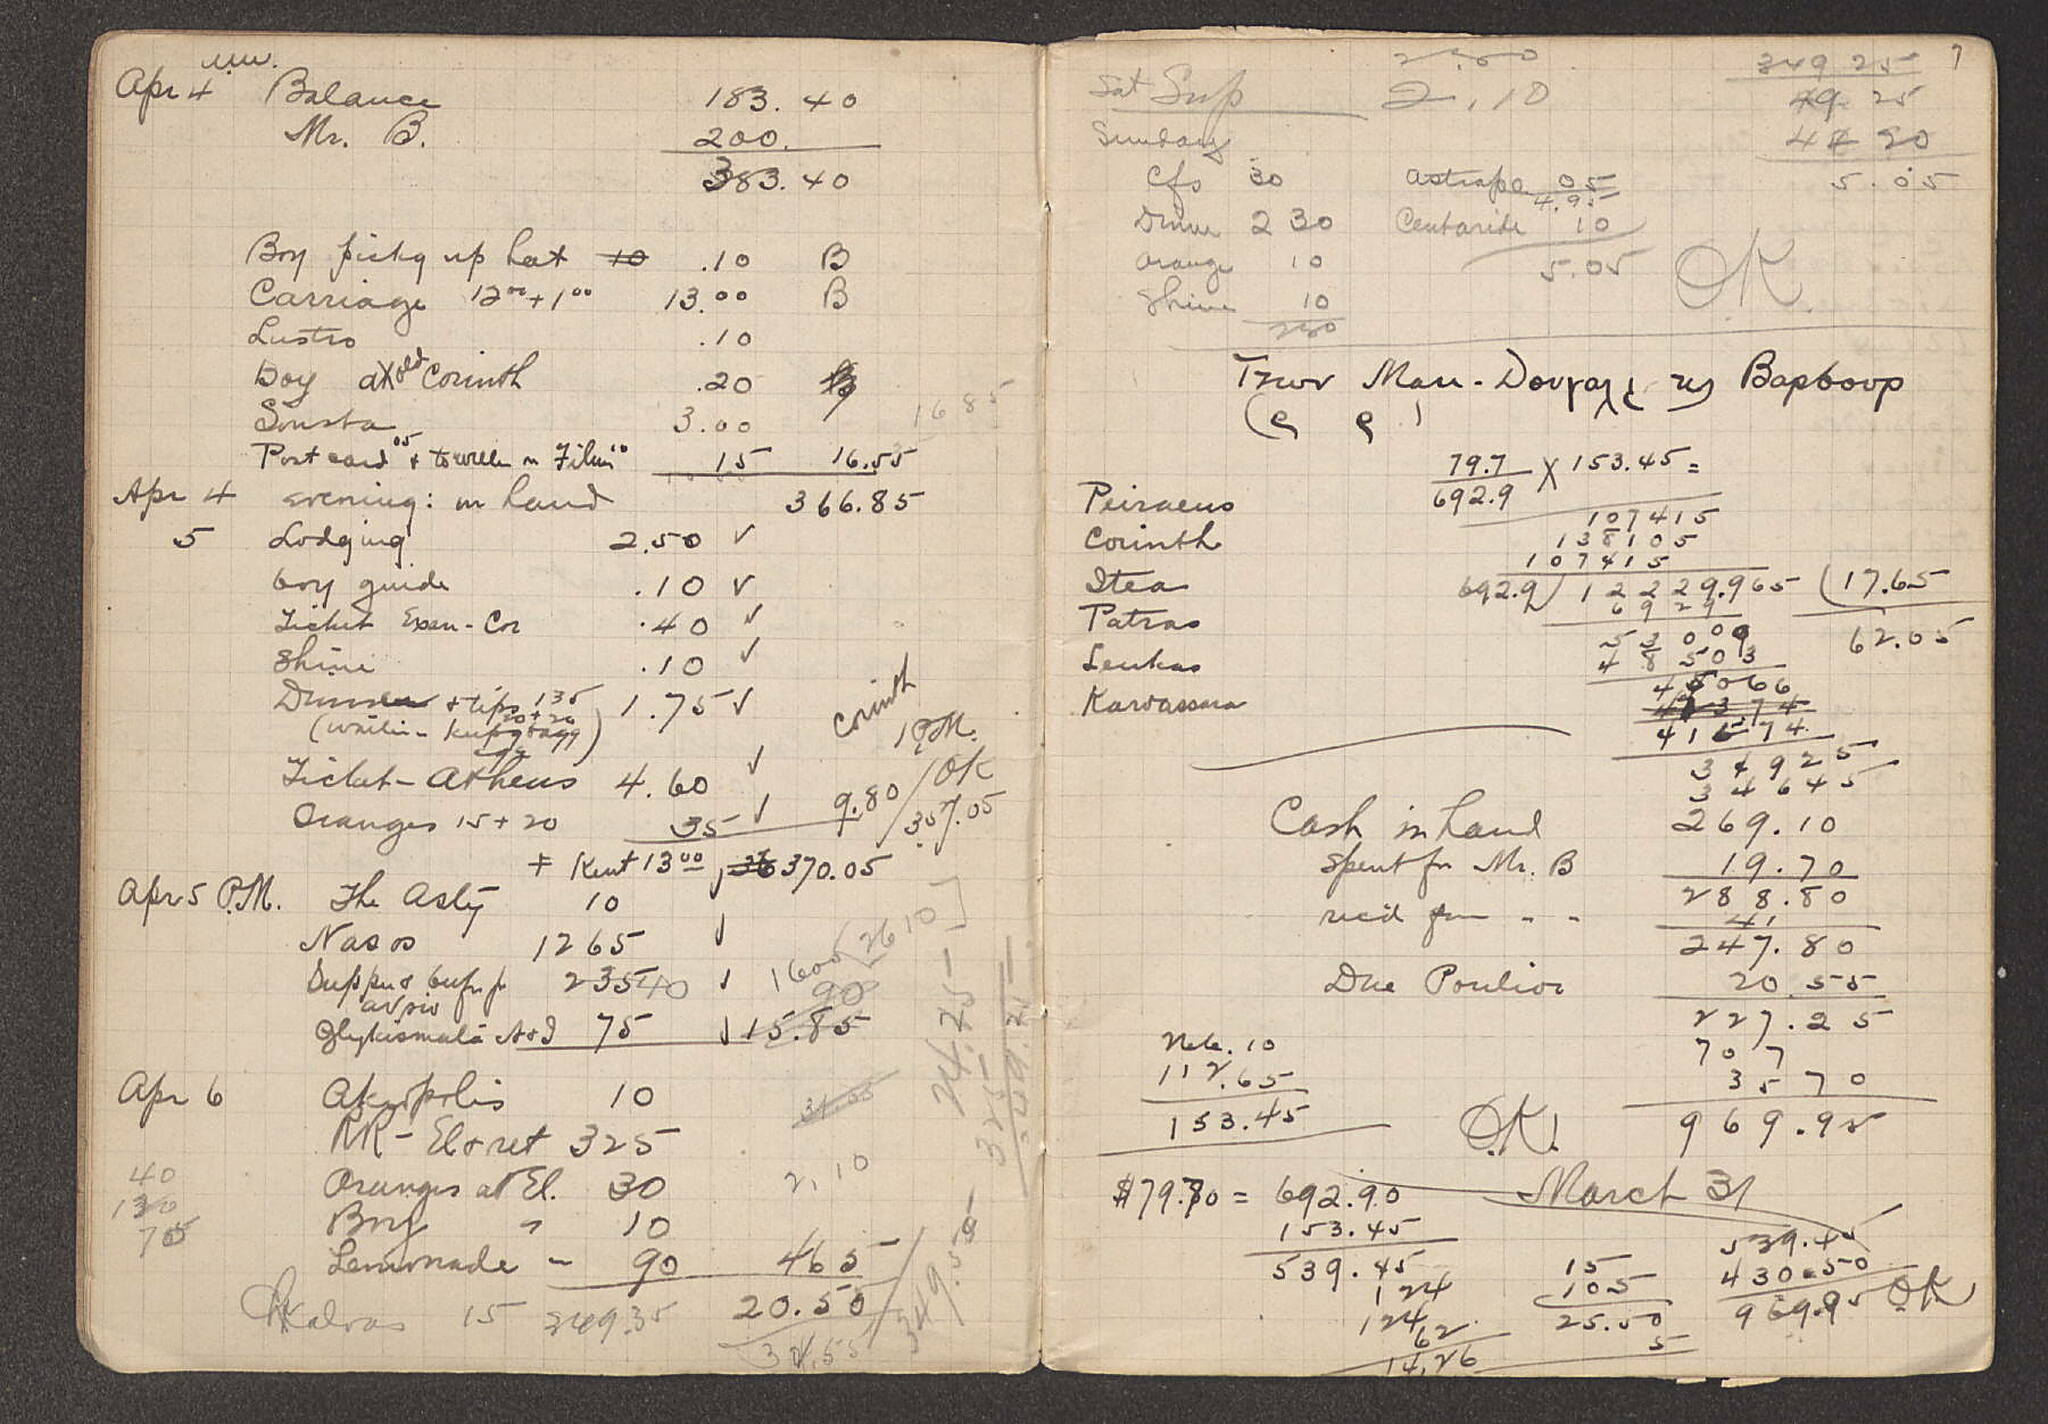 Apr 4 Balance 183.40
Mr. B. 200.
383.40
Boy pickg up hat 10 .10 B
Carriage 12⁰⁰+1⁰⁰ 13.00 B
Lustro .10
Boy at old Corinth .20 B
Sousta 3.00
1685
Post card 05 + 15 16.55
Apr 4 evening: in hand 366.85
5 Lodging 2.50 ✓
boy guide .10 ✓
Ticket Exam-Cor .40 ✓
Shine .10 ✓
Dinner + tips 135 1.75 ✓
20+20
Corinth
P.M.
Ticket - Athens 4.60 ✓
OK
Oranges 15+20 35 ✓ 9.80
357.05
+ Kent 13⁰⁰, 370.05
Apr 5 P.M. The Asty 10
Nasos 1265 ✓
2610
Supper & 235 40 ✓ 1600
avrio 90
Glykismata A+J 75 ✓ 15.85
24.25
325
Apr 6 Akropolis 10
31.55
RR - El & ret 325
Oranges at El. 30 2,10
40
130
70
Boy " 10
Lemonade - 90 465
Kalvas 15 349.35 20.50
349.55
34.55
7
2.50
349 25
Sat Sup 2.10
49 25
Sunday 44 20
Cfs 30 Astrape 05 5.05
4.95
Dinner 2 30 Centaride 10
Orange 10 5.05 OK
Shine 10
280
Των Μακ-Δουγαλλ της Βαρβουρ
79.7 / 692.9 X 153.45 =
Peiraeus
107415
Corinth 138105
107415
Itea 692.9 ) 12229.965 ( 17.65
6929
Patras 53009 62.05
Leukas 48503
45066
Karvassara 42374
41574
34925
34645
Cash in hand 269.10
Spent for Mr. B 19.70
288.80
rec'd from " " 41.
247.80
Due Poulior 20.55
227.25
10 707
112.65 35 70
153.45 O.K. 969.95
$79.70 = 692.90 March 31
153.45
539.45 539.45
15
124 105 430.50
124 25.50 969.95 O.K.
62 5
14.26